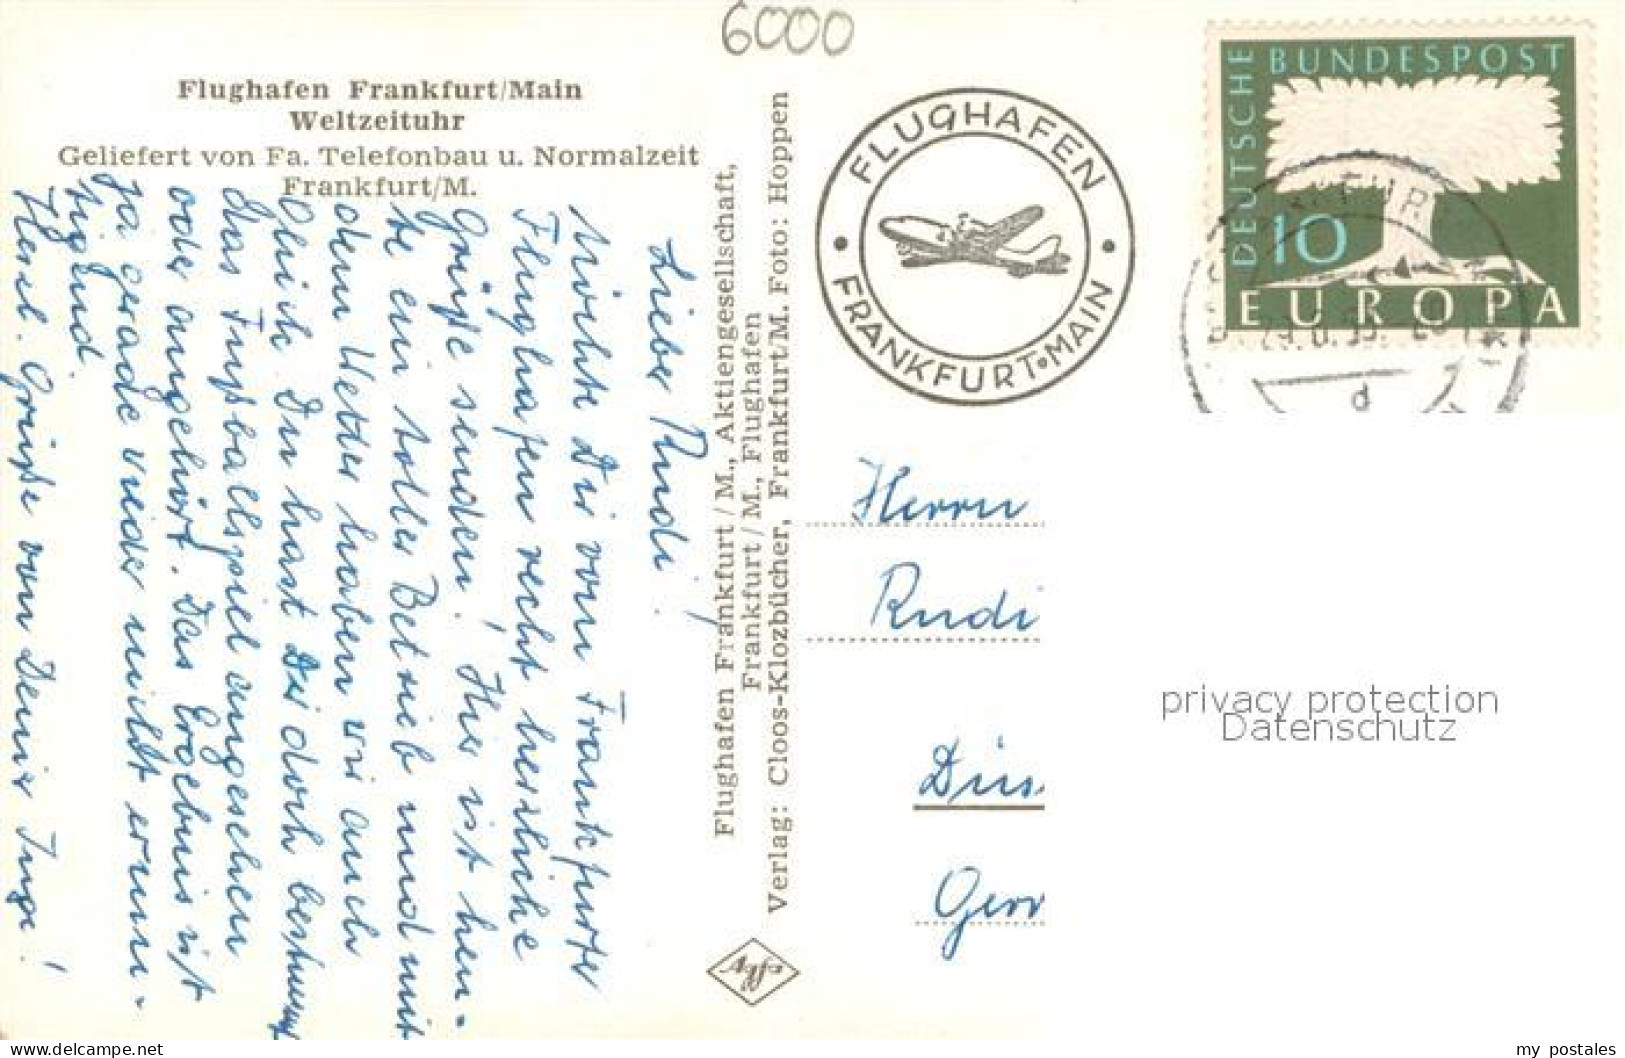 6000
Flughafen Frankfurt/Main
Weltzeituhr
Geliefert von Fa. Telefonbau u. Normalzeit
Frankfurt/M.
Lieber Rudi!
Möchte Dir vom Frankfurter
Flughafen recht herzliche
Grüße senden. Hier ist heu-
te ein toller Betrieb und mit
dem Wetter haben wir auch
Glück. Du hast Dir doch bestimmt
das Fußballspiel angesehen
oder angehört. Das Ergebnis ist
ja gerade wieder nicht ermu-
tigend.
Herzl. Grüße von Deiner Inge!
Flughafen Frankfurt/M., Aktiengesellschaft,
Frankfurt/M., Flughafen
Verlag: Cloos-Klozbücher, Frankfurt/M. Foto: Hoppen
Agfa
FLUGHAFEN
FRANKFURT-MAIN
DEUTSCHE BUNDESPOST
10
EUROPA
d
Herrn
Rudi
Düs
Gerr
privacy protection
Datenschutz
delcampe.net
my_postales